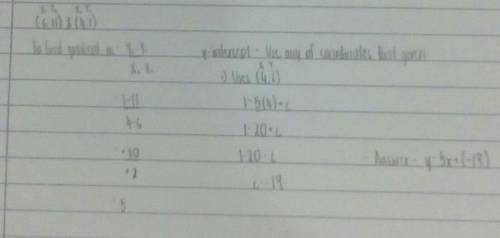 X₁ Y₁ X₂ Y₂
(6, 11) & (4, 1)
To find gradient = Y₂ - Y₁
X₂ - X₁
1-11
4-6
-10
-2
5
y-intercept - Use any of coordinates that given
X Y
(4, 1)
1 = 5(4) + c
1 = 20 + c
1-20 = c
c = -19
Answer = y = 5x + (-19)